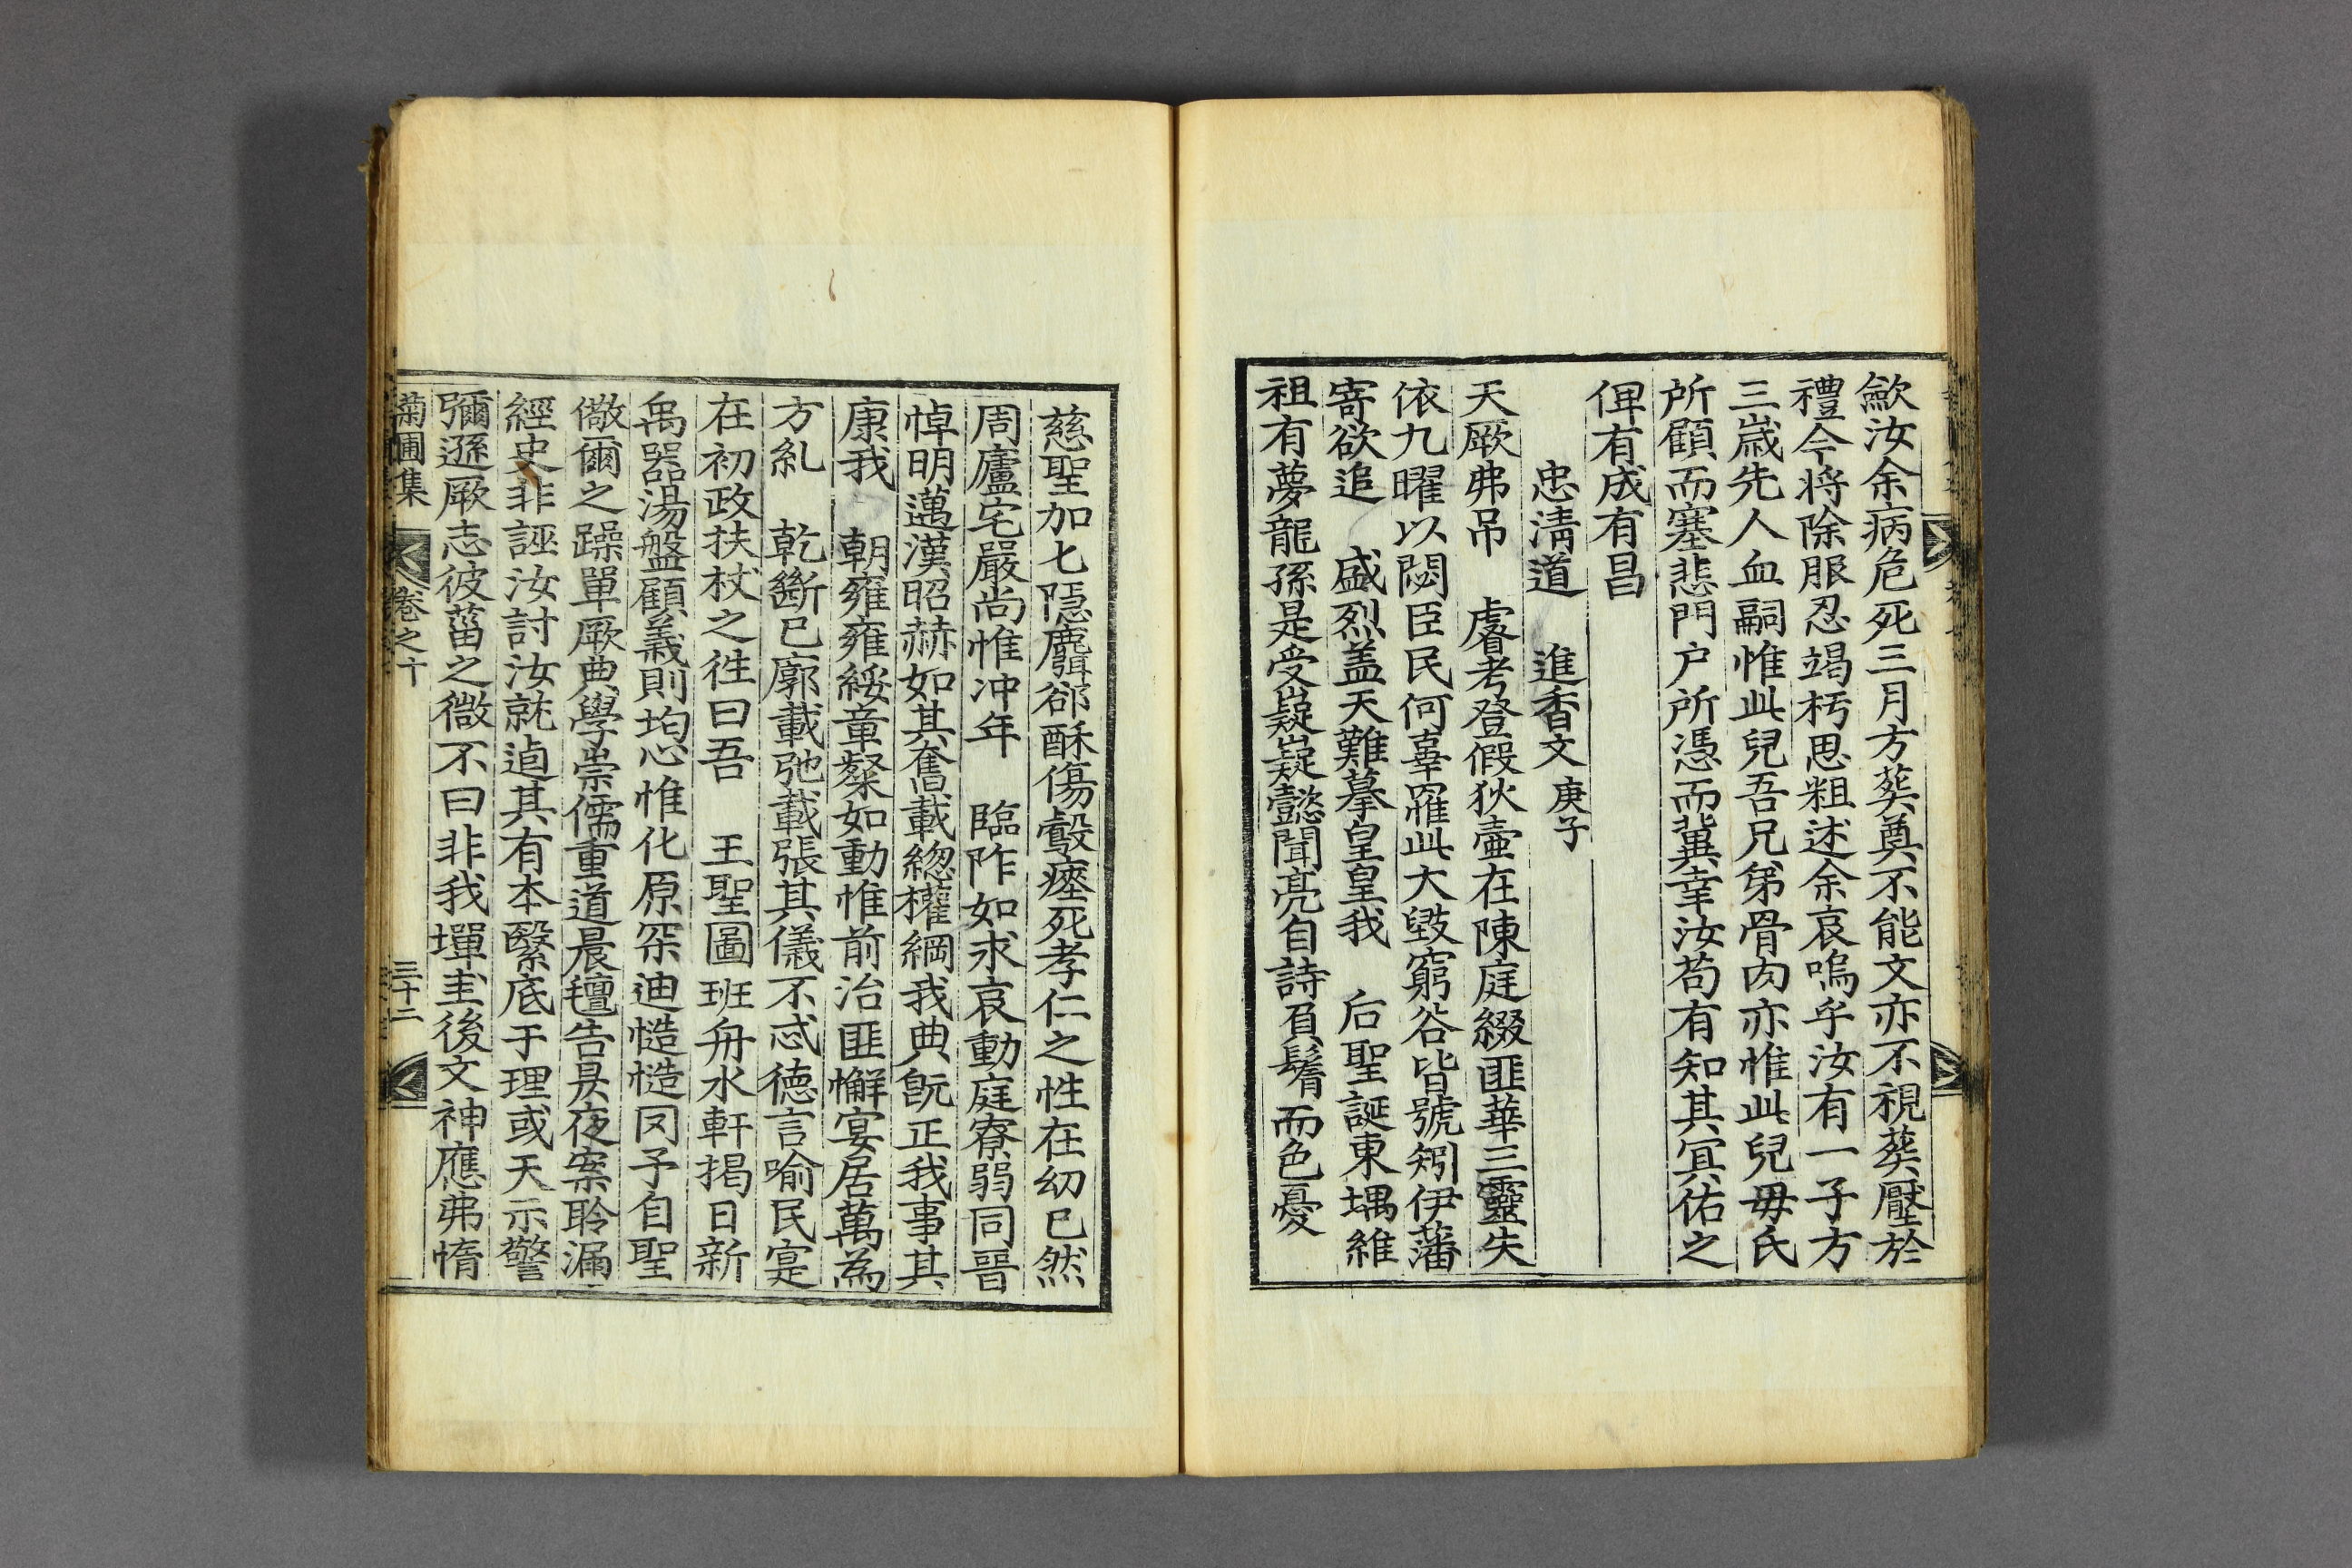 歛汝余病危死三月方葬奠不能文亦不視葬壓於
禮今將除服忍竭朽思粗述余哀嗚乎汝有一子方
三歲先人血嗣惟此兒吾兄弟骨肉亦惟此兒毋氏
所顧而塞悲門户所憑而兾幸汝苟有知其冥佑之
俾有成有昌
忠淸道 進香文 庚子
天厥弗吊 睿考登假狄壷在陳庭綴匪華三靈失
依九曜以閟臣民何辜罹此大毀窮谷皆號矧伊藩
寄欲追 盛烈盖天難摹皇皇我 后聖誕東堣維
祖有夢龍孫是受嶷嶷懿聞亮自詩負鬌而色憂
慈聖加匕隱麛郤酥傷鷇瘞死孝仁之性在㓜已然
周廬宅嚴尚惟冲年 臨阼如求哀動庭寮弱同晉
悼明邁漢昭赫如其奮載緫權綱我典旣正我事其
康我 朝雍雍綏章粲如動惟前治匪懈宴居萬為
方糺 乾斷已廓載弛載張其儀不忒德言喻民寔
在初政扶杖之徃曰吾 王聖圖班舟水軒揭日新
禹器湯盤顧義則均心惟化原罙迪慥慥罔予自聖
儆爾之躁單厥典學崇儒重道晨氊告昃夜案聆漏
經史非誣汝討汝就逌其有本繄底于理或天示警
彌遜厥志彼菑之微不曰非我墠圭後文神應弗惰
菊圃集 卷之十 三十二